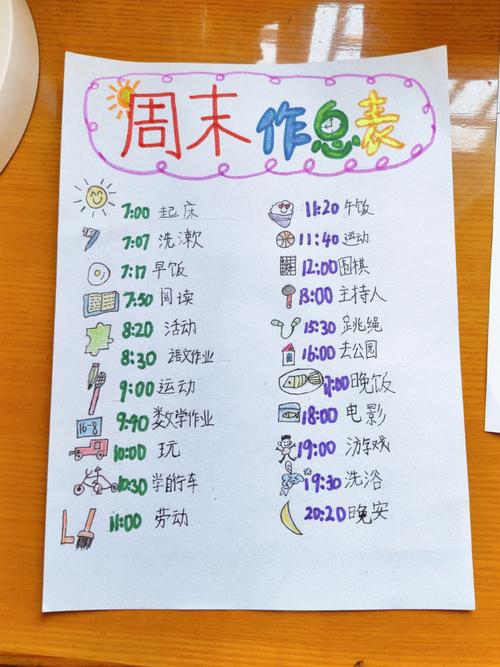 周末作息表
7:00 起床
7:07 洗漱
7:17 早饭
7:50 阅读
8:20 活动
8:30 语文作业
9:00 运动
16-8
9:40 数学作业
10:00 玩
10:30 学自行车
11:00 劳动
11:20 午饭
11:40 运动
12:00 围棋
13:00 主持人
15:30 跳绳
16:00 去公园
17:00 晚饭
18:00 电影
19:00 游戏
19:30 洗浴
20:20 晚安